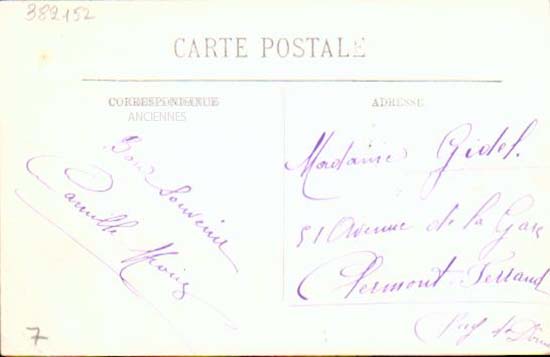 382152
CARTE POSTALE
CORRESPONDANCE
ANCIENNES
ADRESSE
Bon Souvenir
Camille
Madame Gidel.
51 Avenue de la Gare
Clermont-Ferrand
Puy de Dôme
7